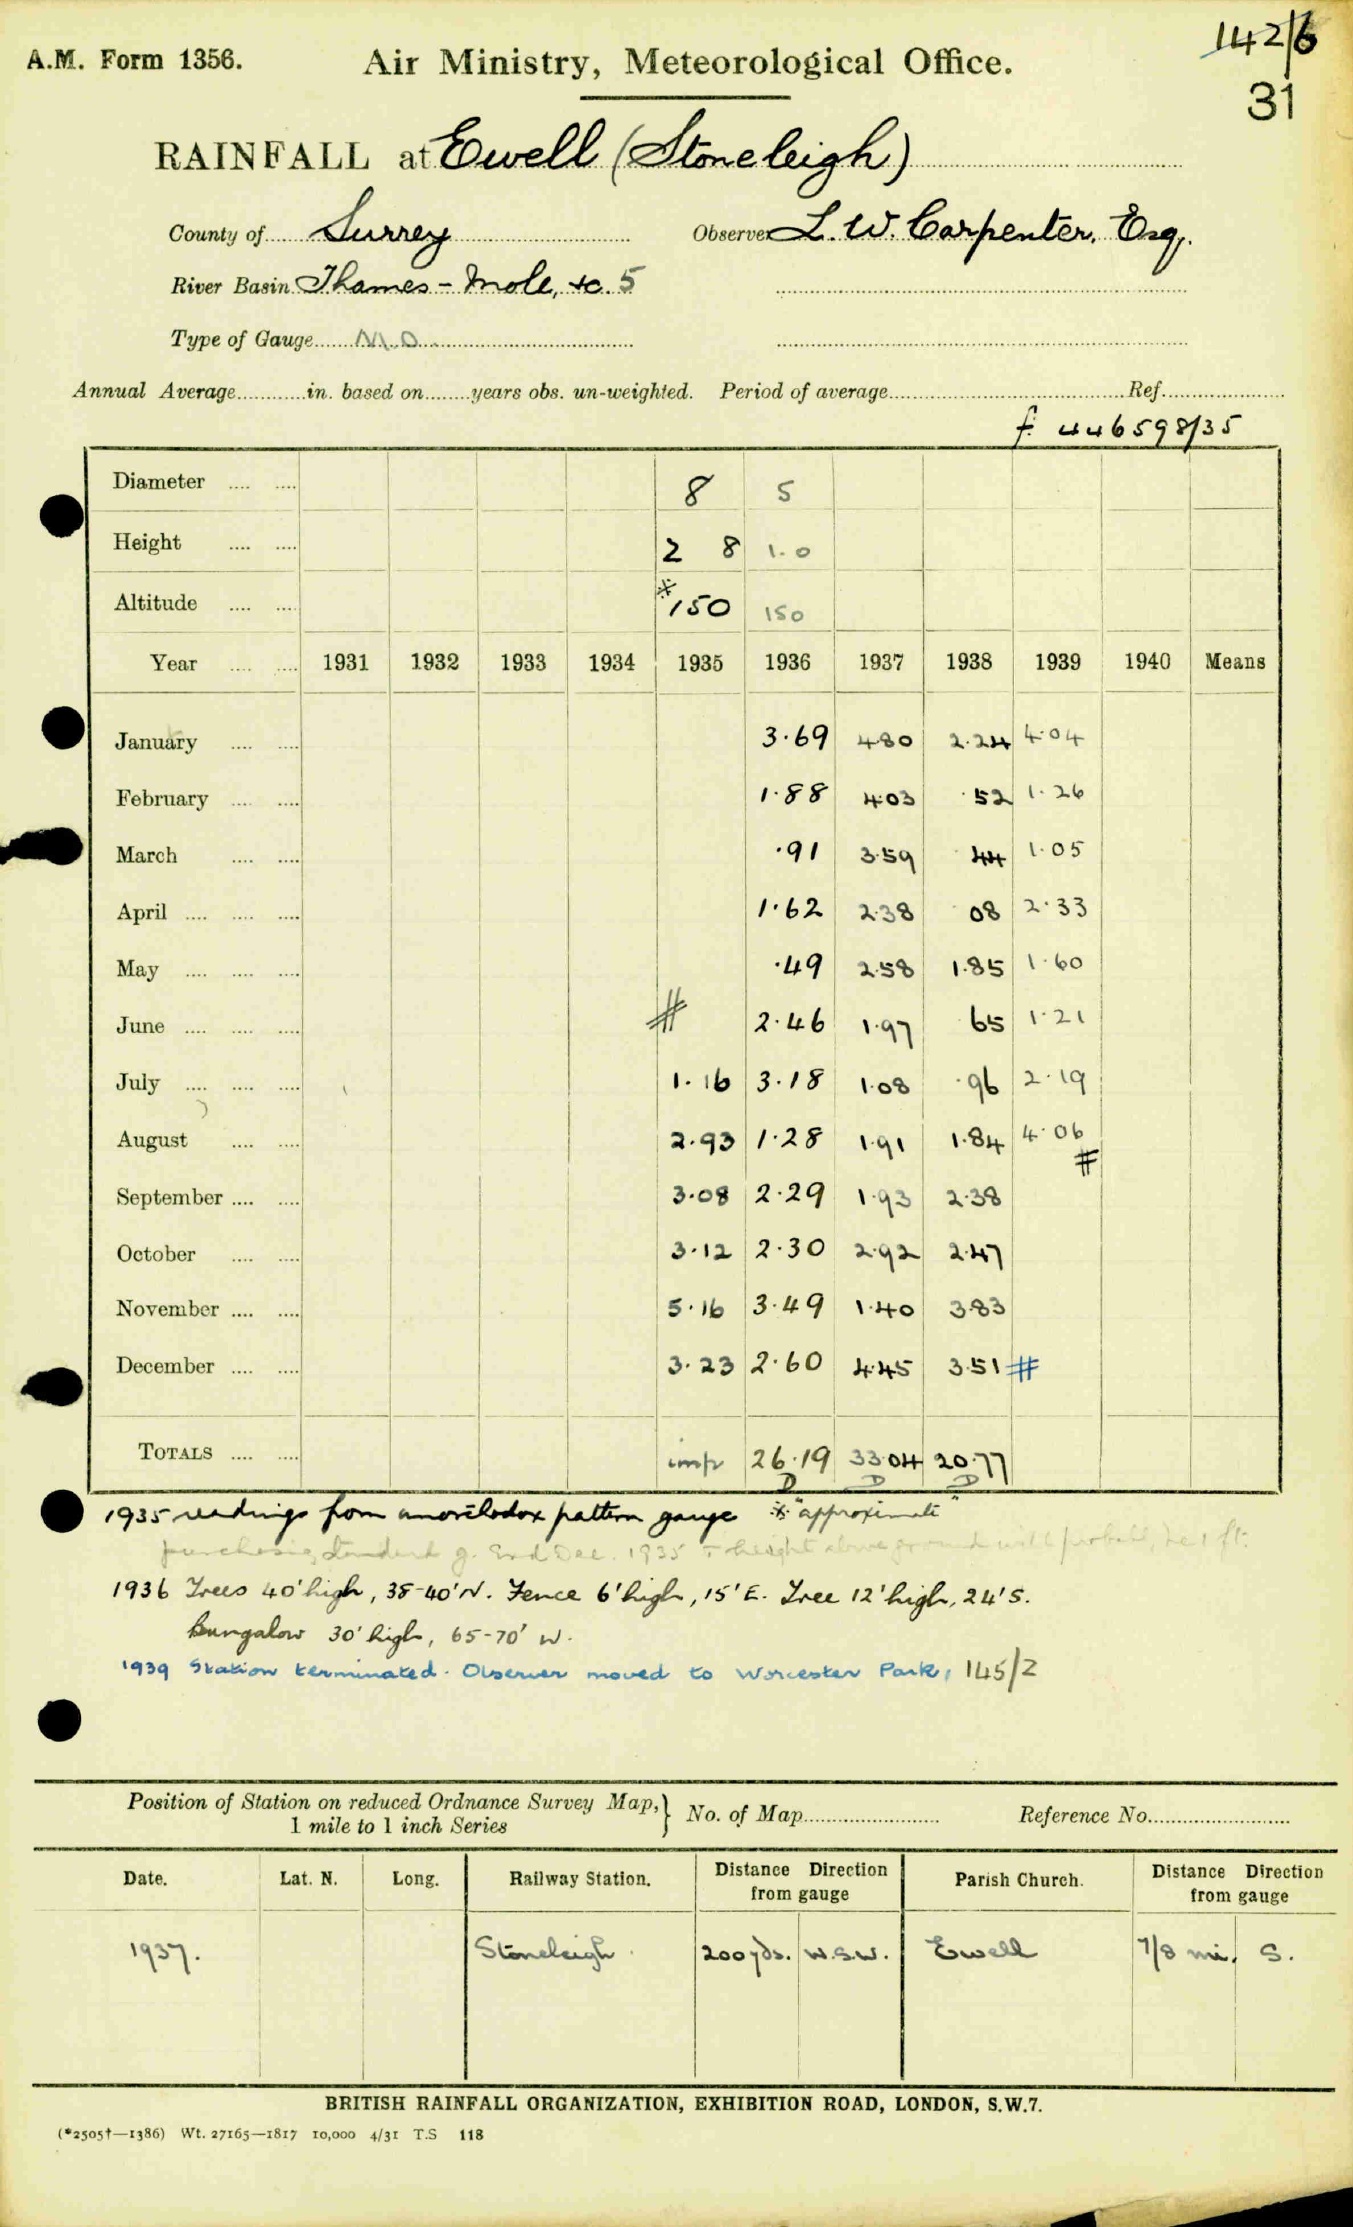 142/6
A.M. Form 1356. Air Ministry, Meteorological Office.
31
RAINFALL at Ewell (Stoneleigh)
County of Surrey Observer L. W. Carpenter, Esq.
River Basin Thames - Mole, &c. 5
Type of Gauge M.O.
Annual Average in. based on years obs. un-weighted. Period of average Ref.
f. 446598/35
Diameter .... .... 8 5
Height .... .... 2 8 1.0
Altitude .... .... *150 150
Year .... .... 1931 1932 1933 1934 1935 1936 1937 1938 1939 1940 Means
January .... .... 3.69 4.80 2.24 4.04
February .... .... 1.88 4.03 .52 1.26
March .... .... .91 3.59 .44 1.05
April .... .... .... 1.62 2.38 .08 2.33
May .... .... .... .49 2.58 1.85 1.60
June .... .... .... # 2.46 1.97 .65 1.21
July .... .... .... 1.16 3.18 1.08 .96 2.19
August .... .... 2.93 1.28 1.91 1.84 4.06 #
September .... .... 3.08 2.29 1.93 2.38
October .... .... 3.12 2.30 2.92 2.47
November .... .... 5.16 3.49 1.40 3.83
December .... .... 3.23 2.60 4.45 3.51 #
TOTALS .... .... imp 26.19 33.04 20.77
D D D
1935 readings from unorthodox pattern gauge * "approximate"
purchasing standard g. End Dec. 1935 & height above ground will probably be 1 ft.
1936 Trees 40' high, 38-40' N. Fence 6' high, 15' E. Tree 12' high, 24' S.
Bungalow 30' high, 65-70' W.
1939 Station terminated. Observer moved to Worcester Park, 145/2
Position of Station on reduced Ordnance Survey Map, } No. of Map Reference No.
1 mile to 1 inch Series
Date. Lat. N. Long. Railway Station. Distance Direction from gauge Parish Church. Distance Direction from gauge
1937. Stoneleigh. 200 yds. W.S.W. Ewell 7/8 mi. S.
BRITISH RAINFALL ORGANIZATION, EXHIBITION ROAD, LONDON, S.W.7.
(*2505†—1386) Wt. 27165—1817 10,000 4/31 T.S 118